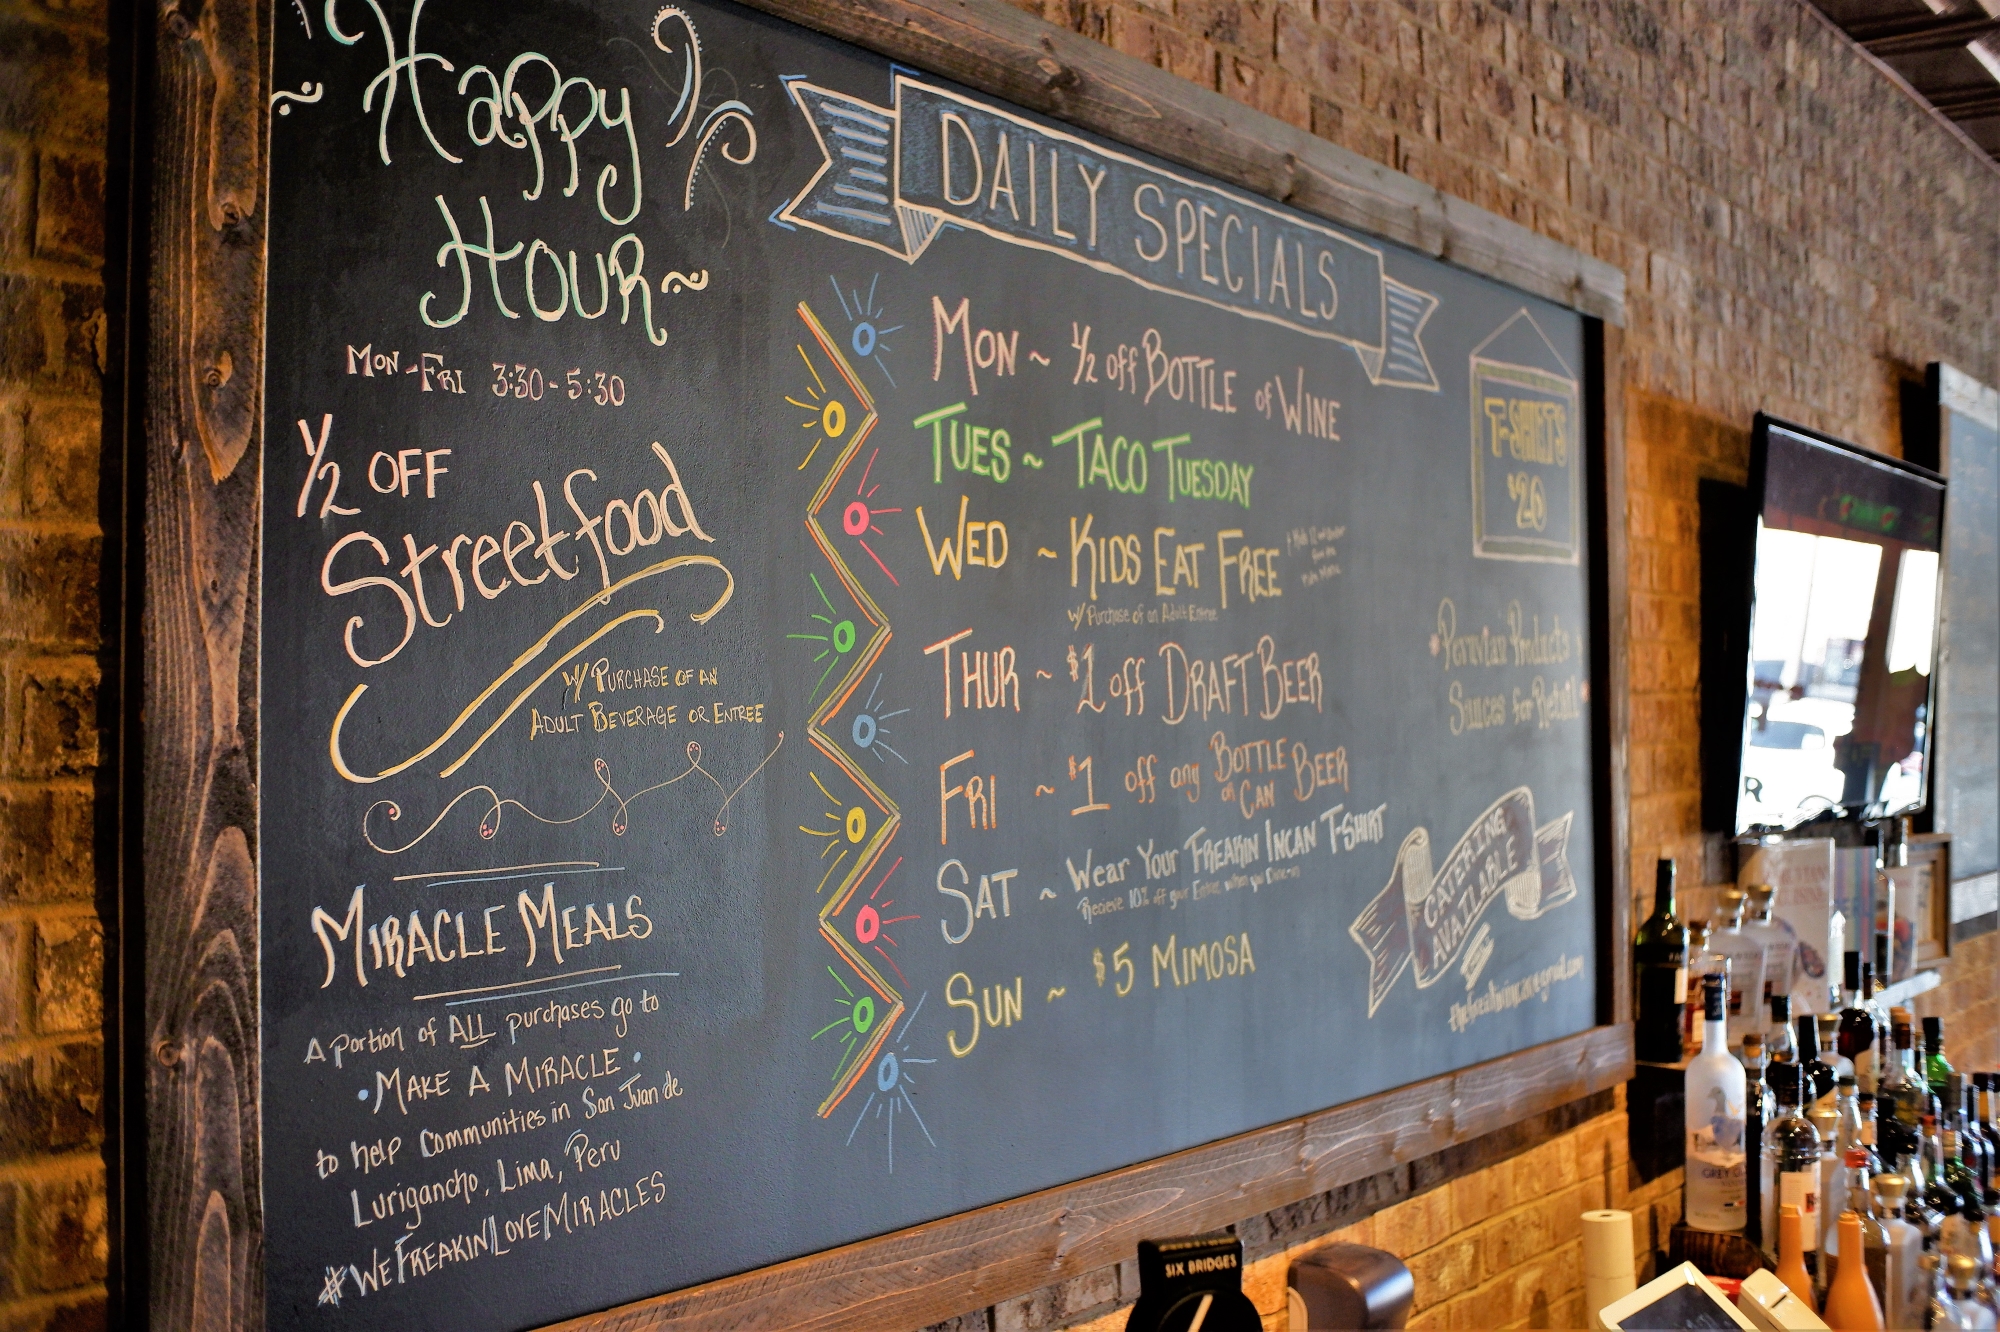 Happy
Hour
Mon-Fri 3:30-5:30
1/2 OFF
Streetfood
w/ Purchase of an
Adult Beverage or Entree
Miracle Meals
A portion of ALL purchases go to
• Make A Miracle •
to help Communities in San Juan de
Lurigancho, Lima, Peru
#WeFreakinLoveMiracles
DAILY SPECIALS
Mon ~ 1/2 off Bottle of Wine
Tues ~ Taco Tuesday
Wed ~ Kids Eat Free
w/ Purchase of an Adult Entree
Thur ~ $1 off Draft Beer
Fri ~ $1 off any Bottle or Can Beer
Sat ~ Wear Your Freakin Incan T-Shirt
Recieve 10% off your Entree when you Dine-in
Sun ~ $5 Mimosa
T-SHIRTS
$20
Peruvian Products
Sauces for Retail
CATERING
AVAILABLE
SIX BRIDGES
GREY